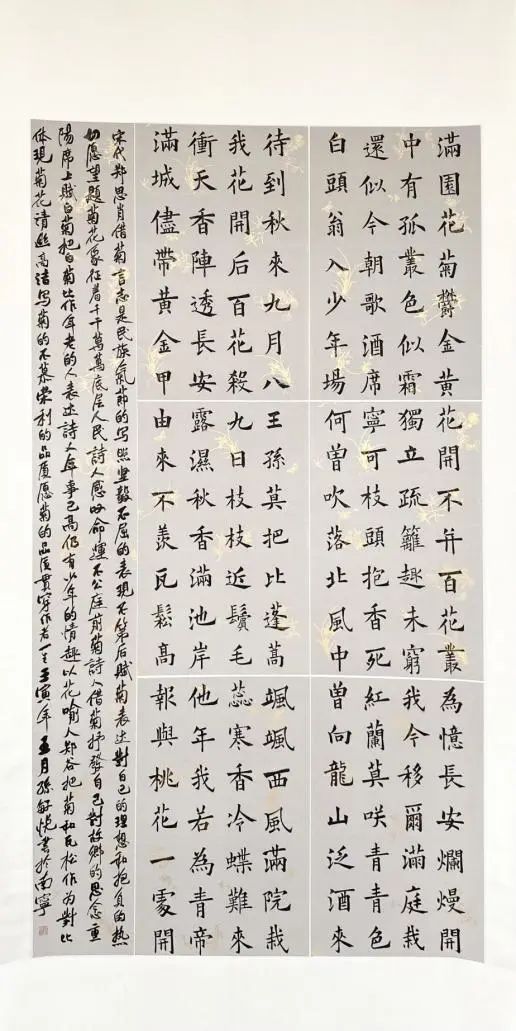 滿園花菊鬱金黃
中有孤叢色似霜
還似今朝歌酒席
白頭翁入少年場
花開不并百花叢
獨立疏籬趣未窮
寧可枝頭抱香死
何曾吹落北風中
為憶長安爛熳開
我今移爾滿庭栽
紅蘭莫咲青青色
曾向龍山泛酒來
待到秋來九月八
我花開后百花殺
衝天香陣透長安
滿城儘帶黃金甲
王孫莫把比蓬蒿
九日枝枝近鬢毛
露濕秋香滿池岸
由來不羨瓦鬆高
颯颯西風滿院栽
蕊寒香冷蝶難來
他年我若為青帝
報與桃花一處開
宋代郑思肖借菊言志是民族氣节的写照坚毅不屈的表現不第后赋菊表述對自己的理想和抱負的热
切愿望題菊花象征着千千萬萬底层人民詩人感叹命運不公庭前菊詩人借菊抒發自己對故鄉的思念重
陽席上賦白菊把白菊比作年老的人表述詩人年事已高仍有少年的情趣以花喻人郑谷把菊和瓦松作为對比
体現菊花清幽高洁写菊的不慕榮利的品质愿菊的品质貫穿作者一生壬寅年五月孫悅書於南寧